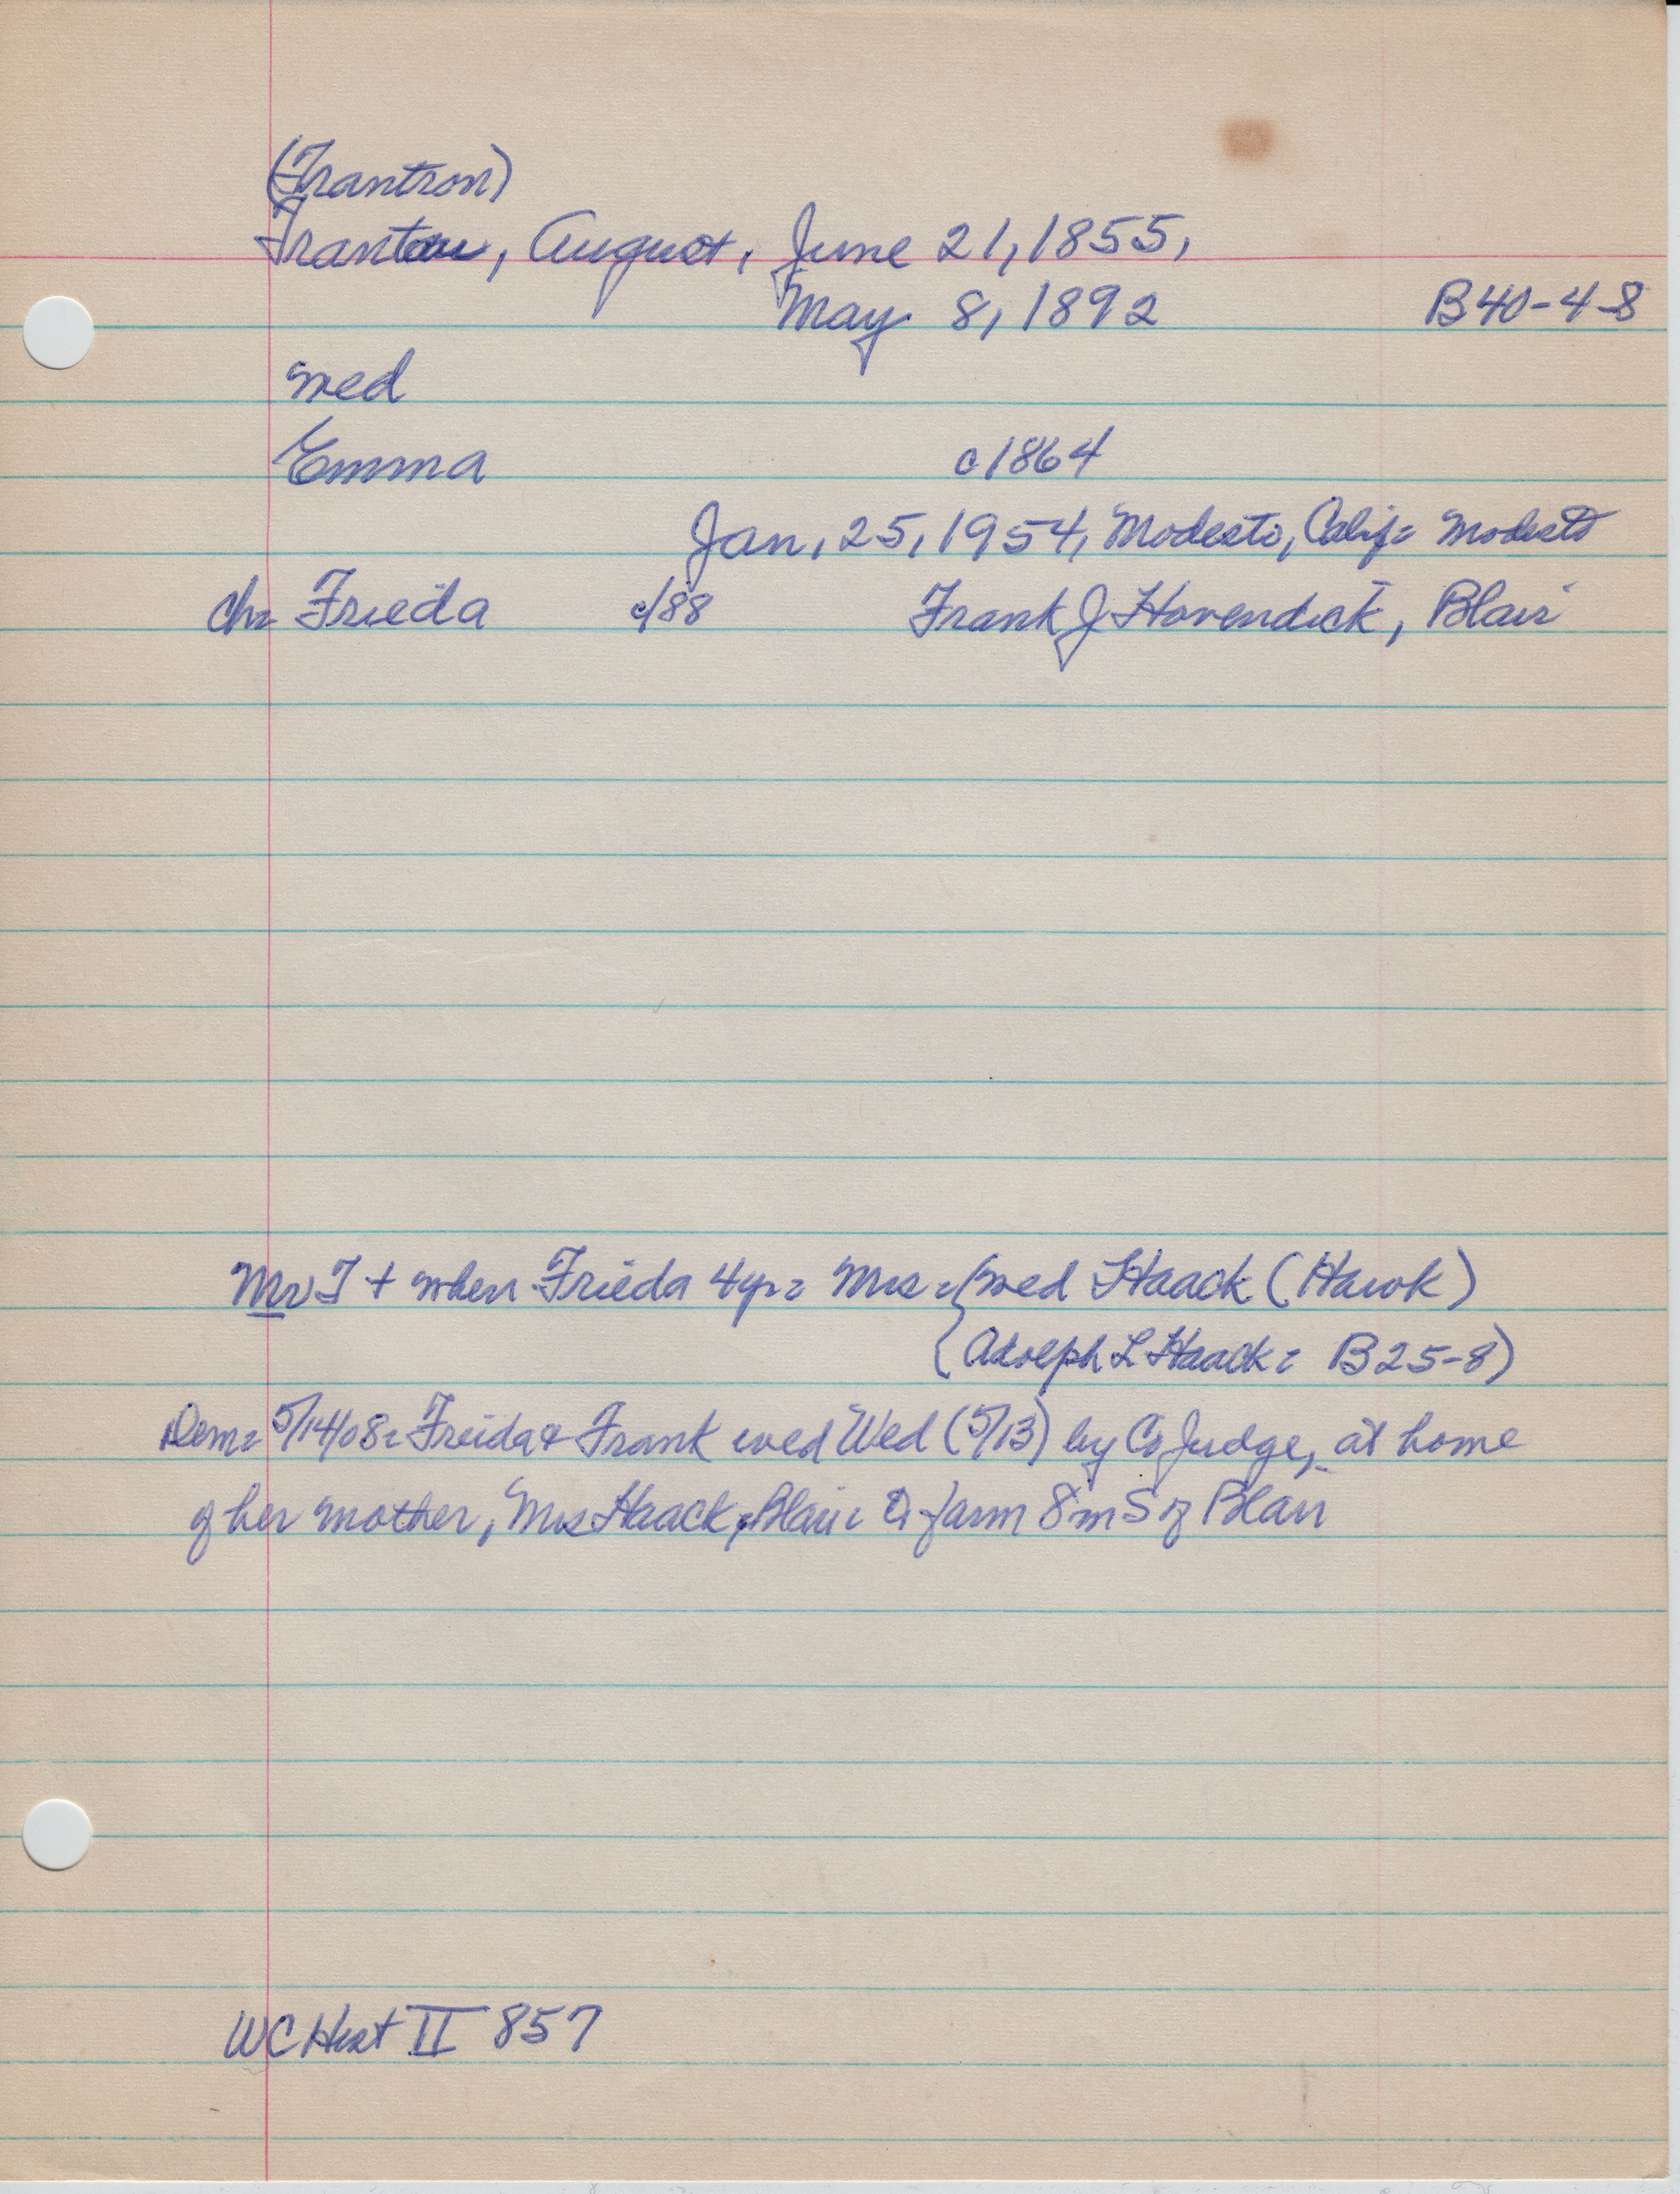 (Trantron)
Trantow, August, June 21, 1855,
May 8, 1892 B40-4-8
wed
Emma c1864
Jan, 25, 1954, Modesto, Calif= Modesto
Ch= Frieda c/88 Frank J Hovendick, Blair
Mr T + when Frieda 4yr= Mrs = wed Haack (Hawk)
(Adolph L Haack= B25-8)
Dem= 5/14/08= Freida & Frank wed Wed (5/13) by Co Judge, at home
of her mother, Mrs Haack, Blair= farm 8 m S of Blair
WC Hist II 857